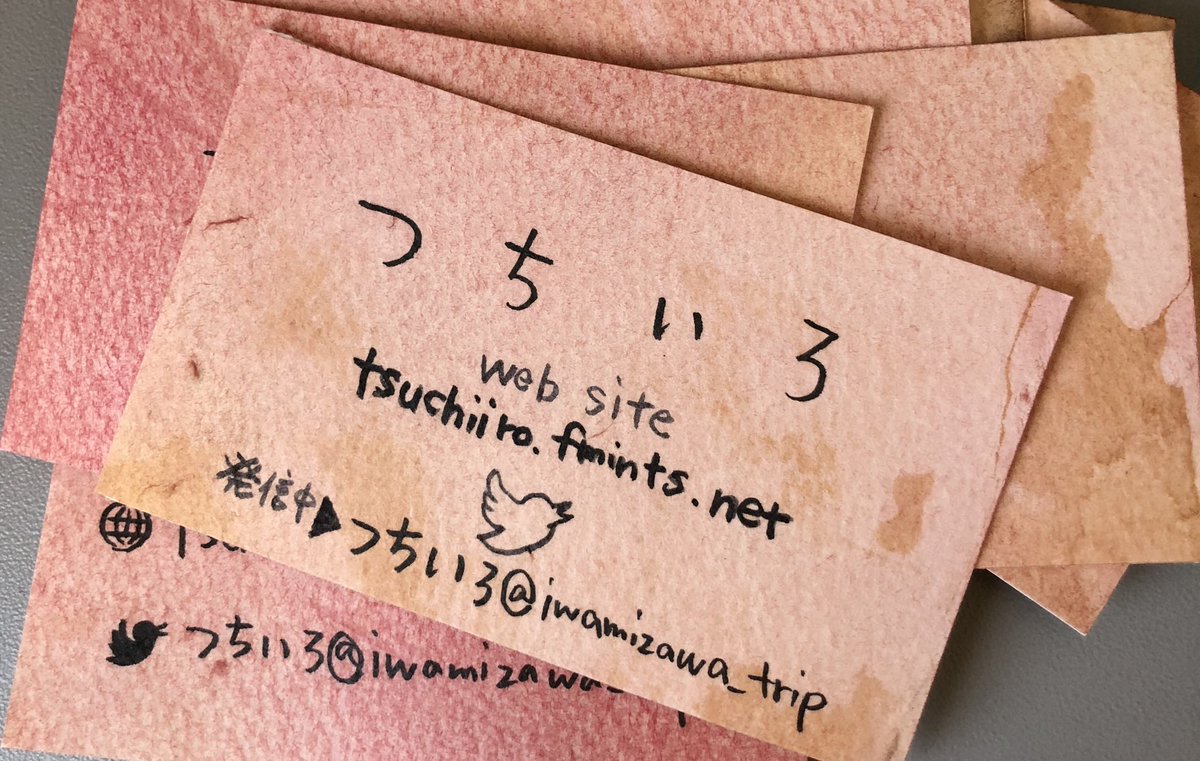 つちいろ
web site
tsuchiiro.fmints.net
発信中▶つちいろ@iwamizawa_trip
つちいろ@iwamizawa_